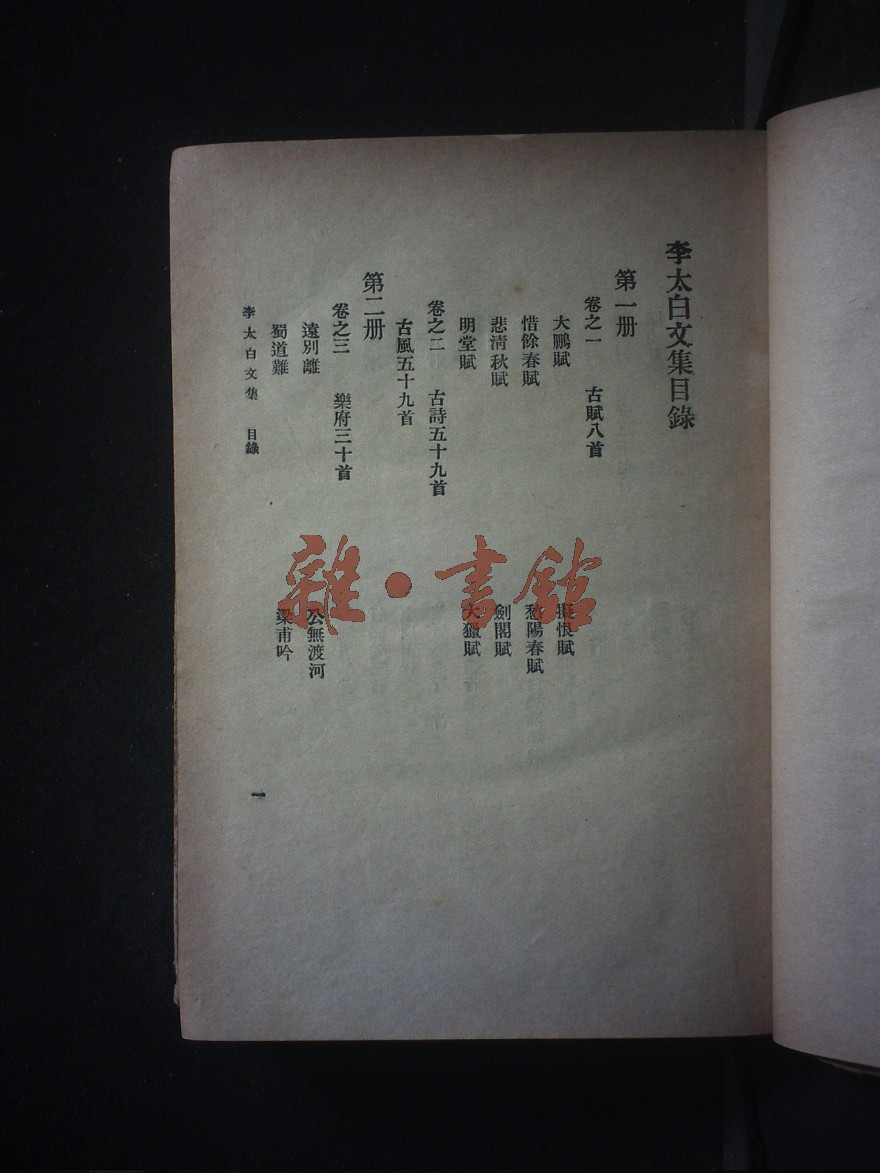 李太白文集目錄
第一册
卷之一 古賦八首
大鵬賦 擬恨賦
惜餘春賦 愁陽春賦
悲清秋賦 劍閣賦
明堂賦 大獵賦
卷之二 古詩五十九首
古風五十九首
第二册
卷之三 樂府三十首
遠別離 公無渡河
蜀道難 梁甫吟
李太白文集 目錄
一
雜·書館